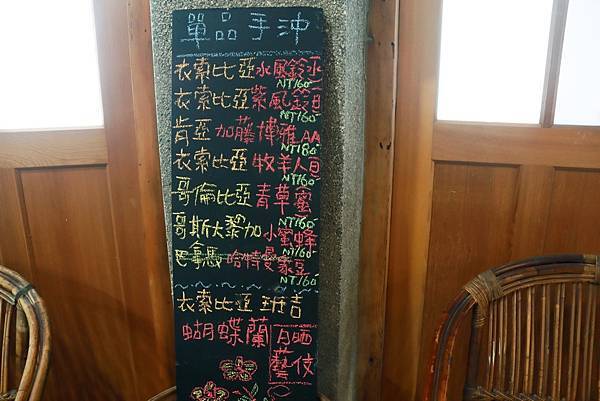 單品手沖
衣索比亞水風鈴
NT160
衣索比亞紫風鈴
NT160
肯亞加藤博雅AA
NT180
衣索比亞牧羊人
NT160
哥倫比亞青草蜜
NT160
哥斯大黎加小蜜蜂
NT160
巴拿馬哈特曼豪豆
NT160
衣索比亞 班吉
蝴蝶蘭
日晒
藝伎